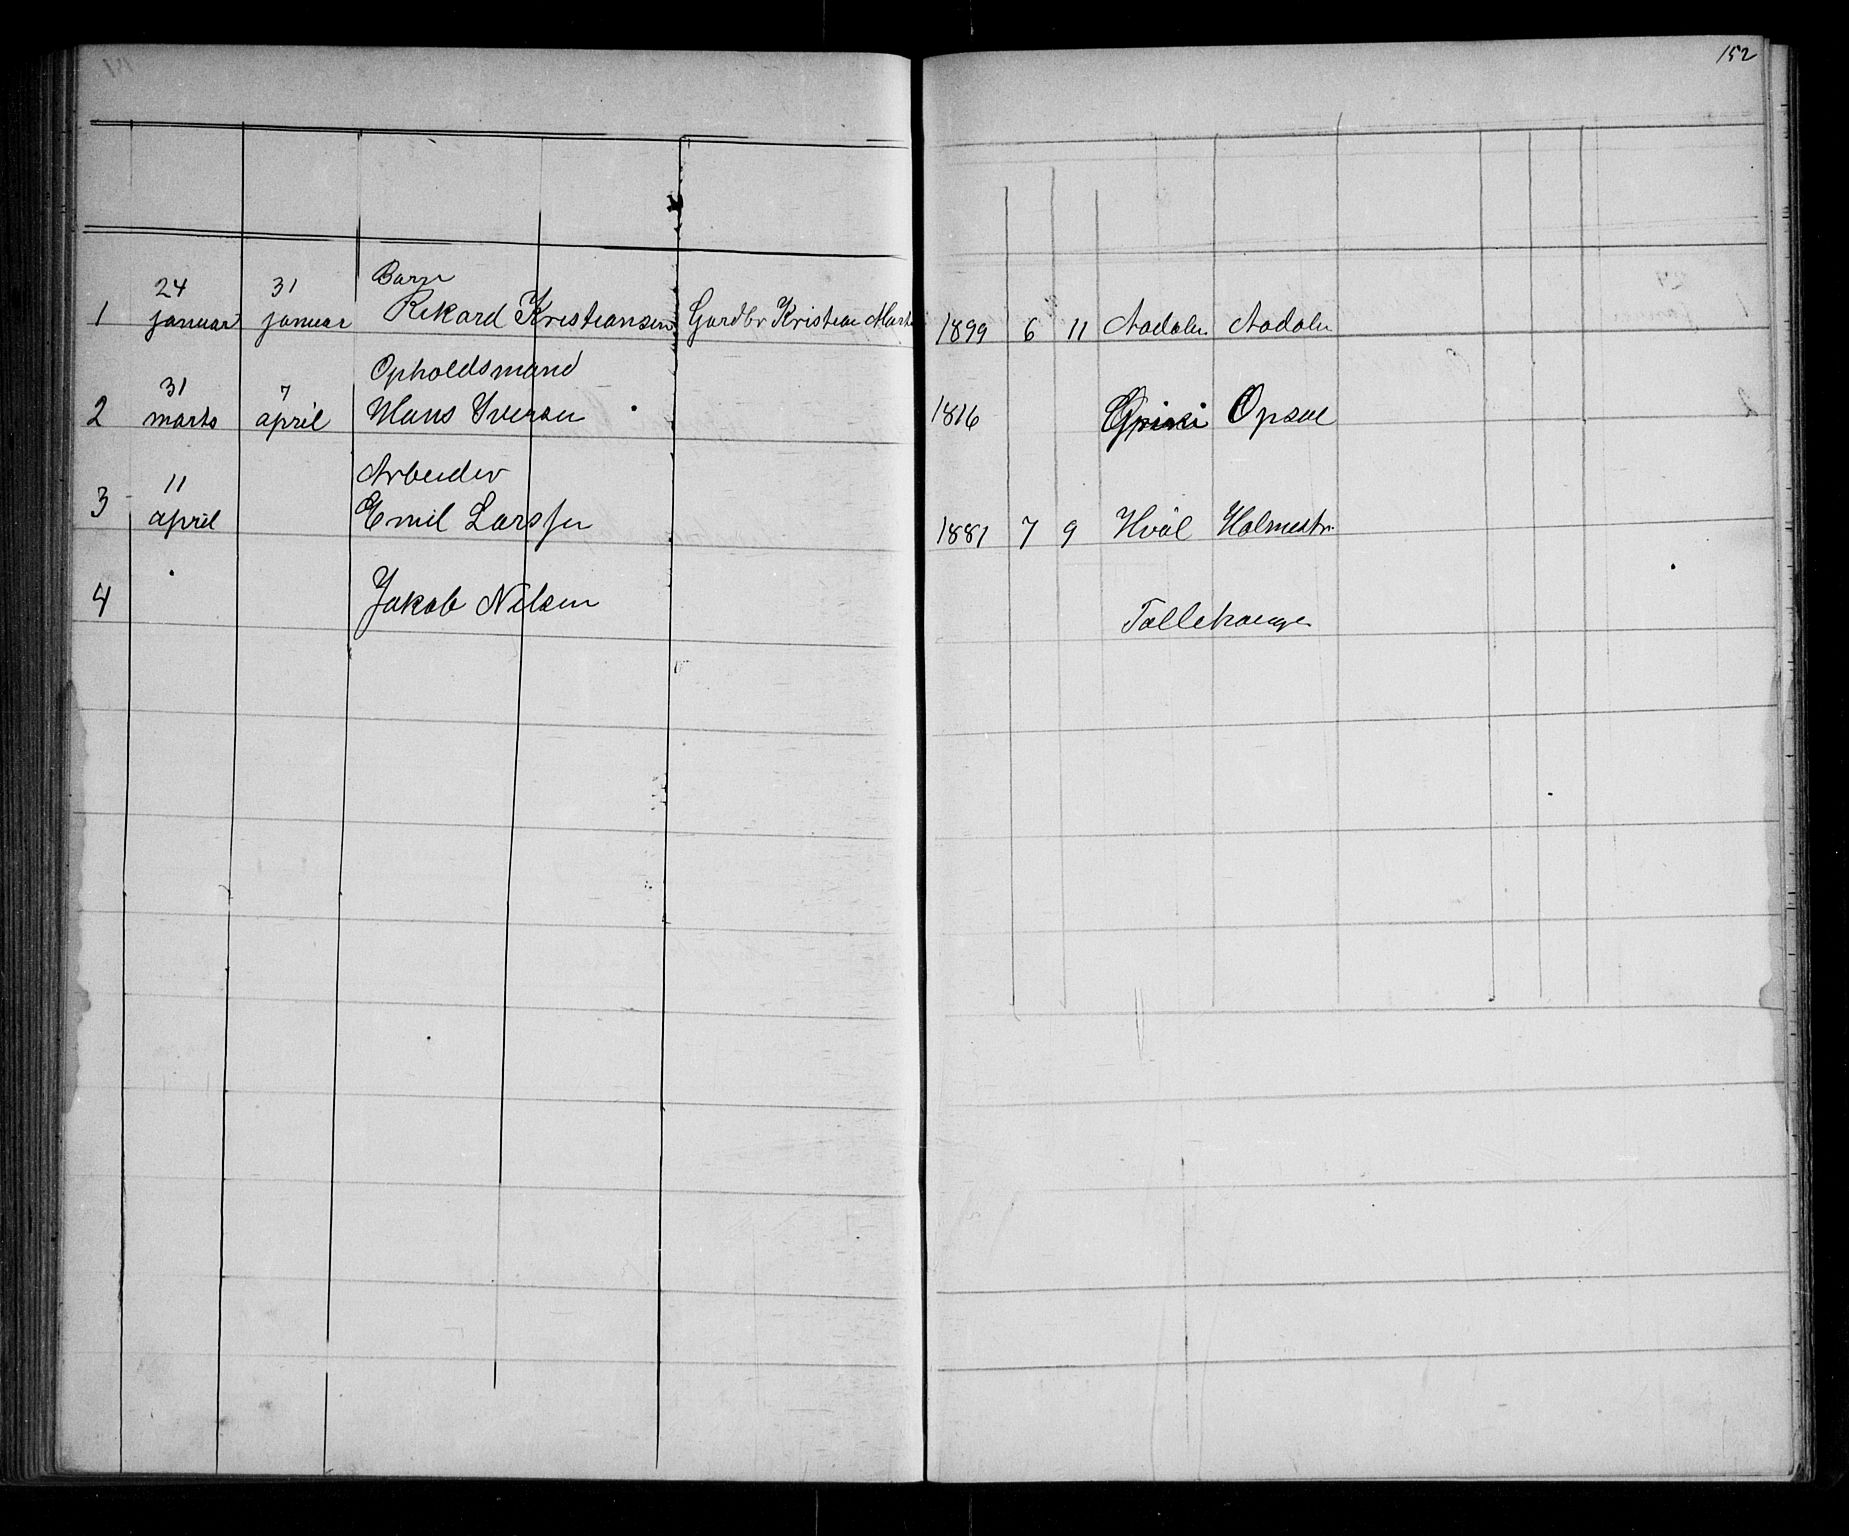 152
24 31 Barn
1 januar januar Rikard Kristiansen Gardbr Kristian 1899 6 11 Aadalen Aadalen
31 7 Opholdsmand
2 marts april Hans Iversen 1816 Opsal
11 Arbeider
3 april Emil Larssen 1881 7 9 Hvål Holmestr.
4 Jakob Nilsen